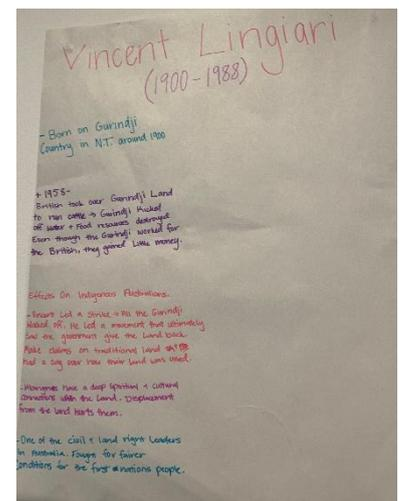 Vincent Lingiari
(1900-1988)
- Born on Gurindji
Country in N.T. around 1900
+ 1958-
British took over Gurindji Land
to run cattle → Gurindji Kicked
off water + Food resources destroyed
Even though the Gurindji worked for
the British, they gained little money.
Effects On Indigenous Australians.
- Vincent Led a Strike → All the Gurindji
Walked off. He led a movement that ultimately
the government give the Land back
Make claims on traditional land
had a say over how their land was used.
have a deep spiritual + cultural
connections with the Land. Displacement
from the land hurts them.
- One of the civil + land right Leaders
in Australia. Fought for fairer
conditions for the first nations people.